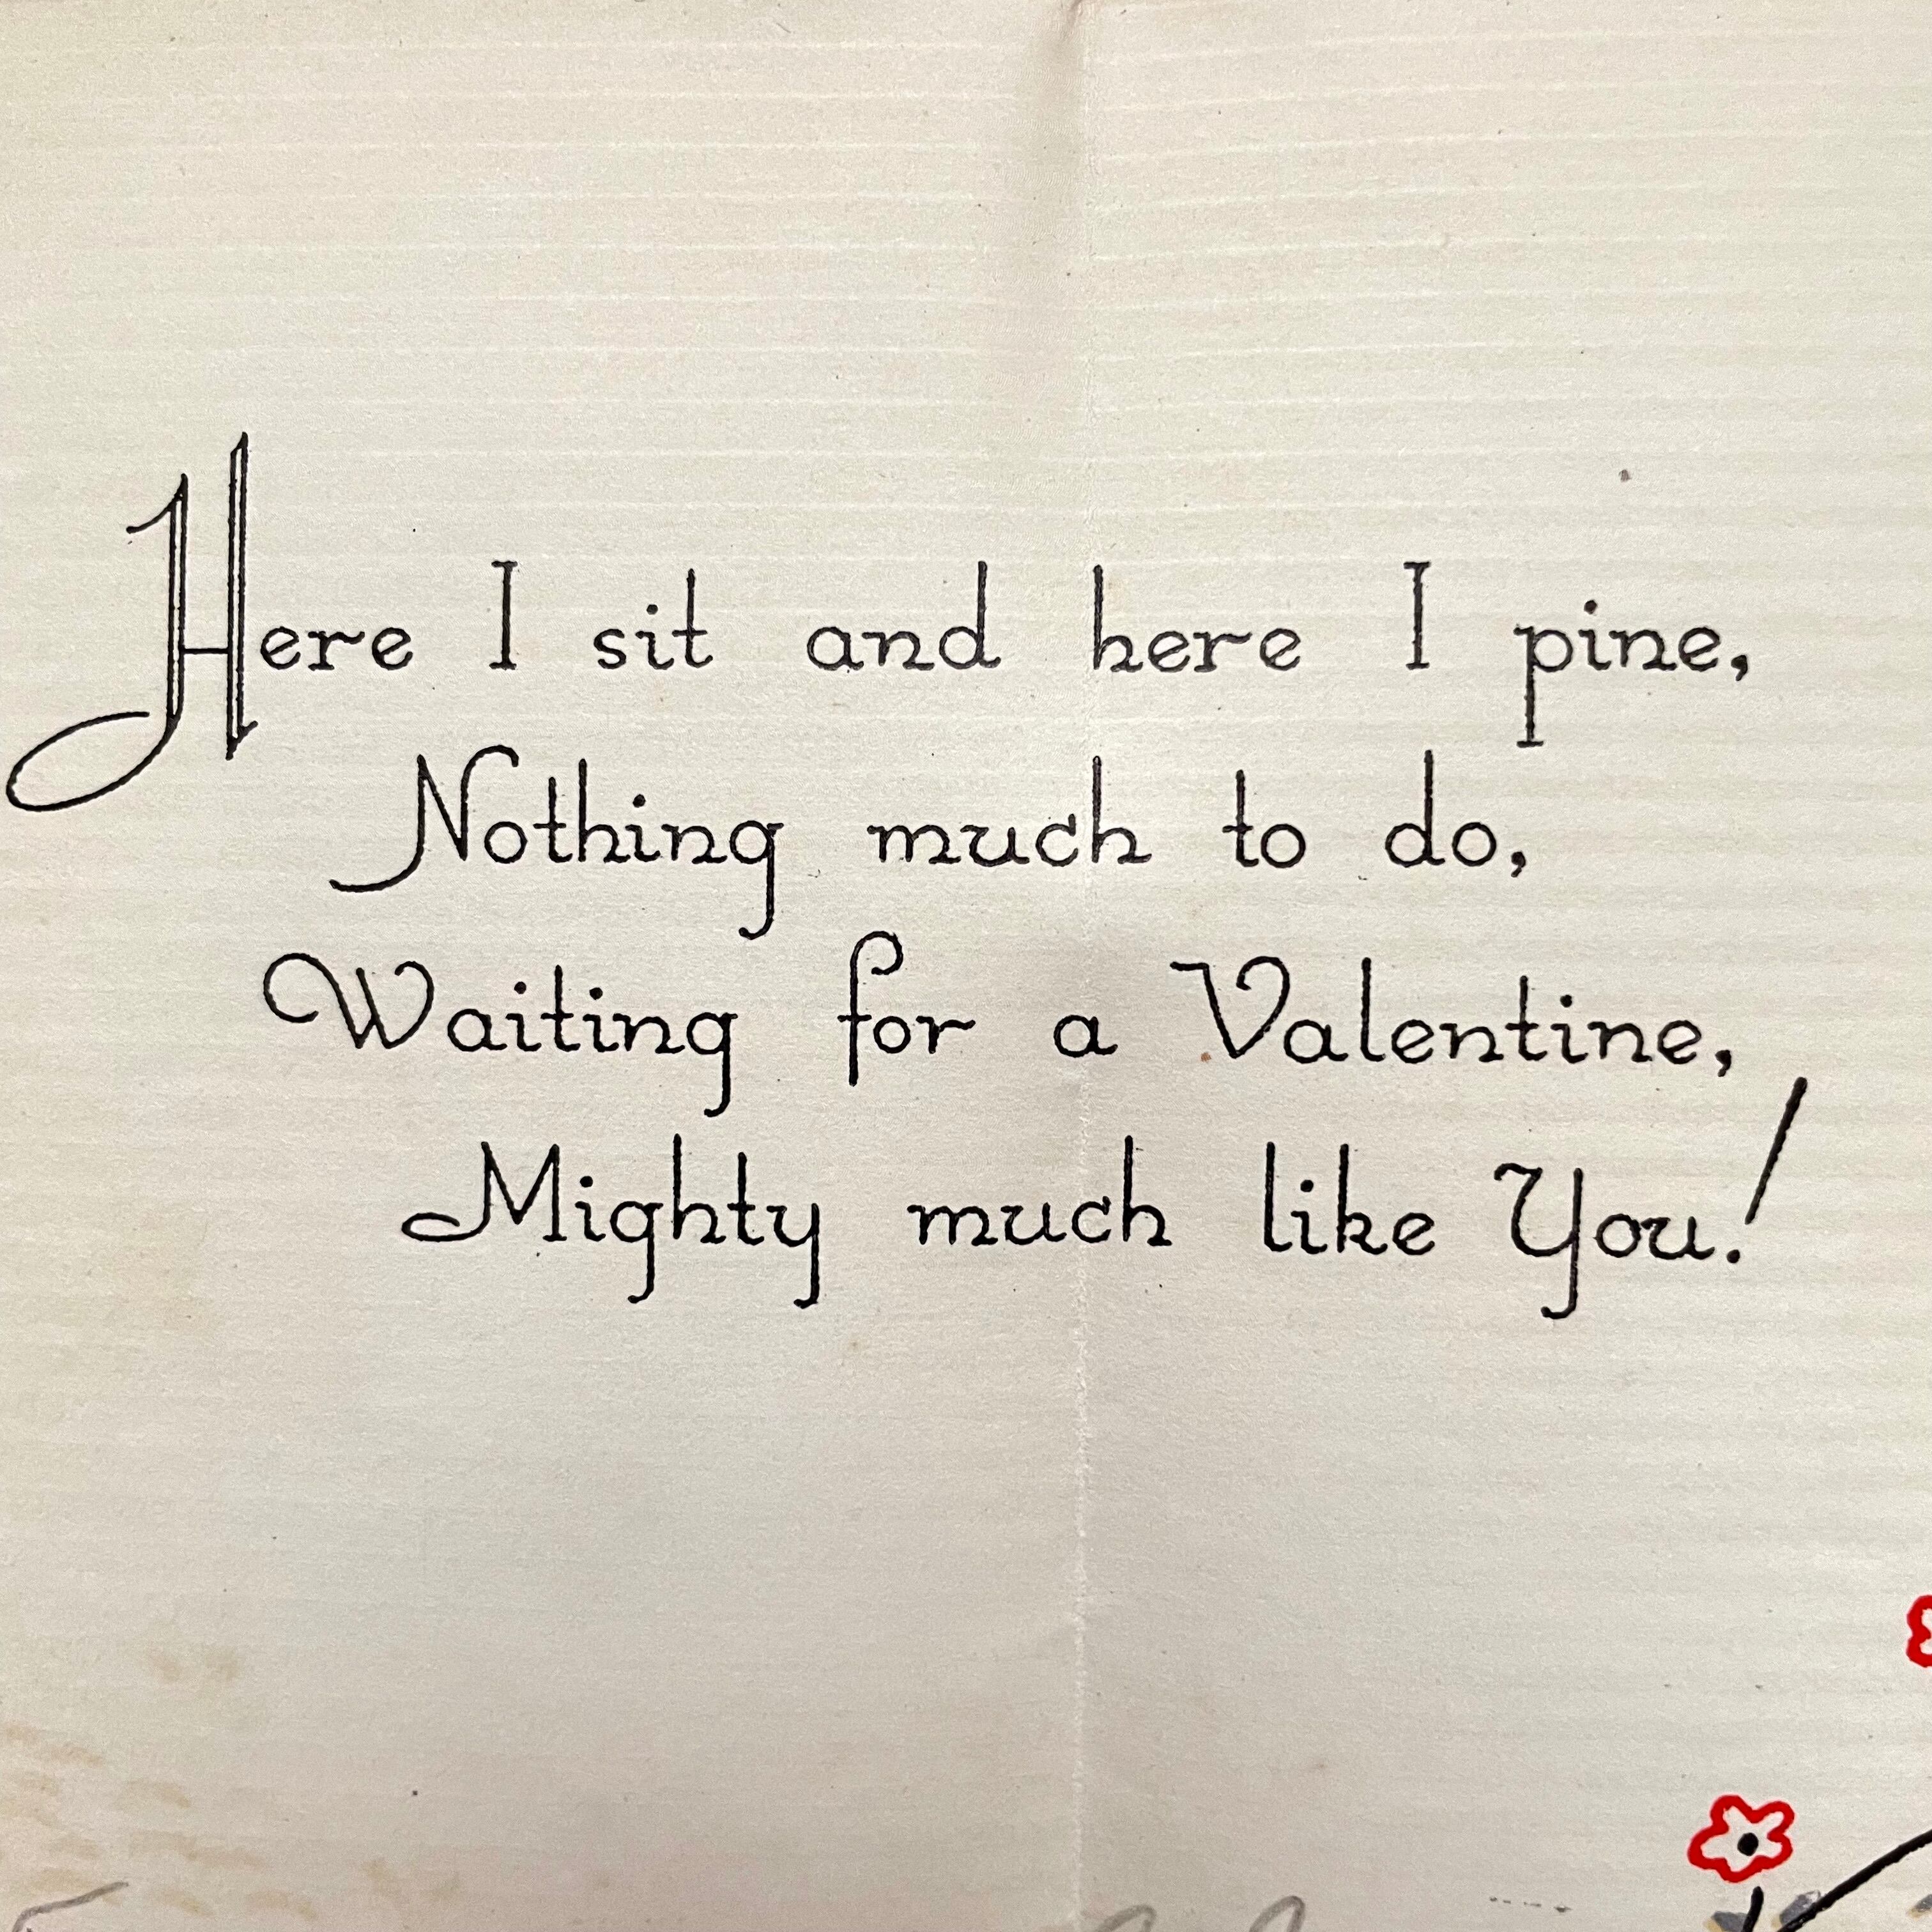 Here I sit and here I pine,
Nothing much to do,
Waiting for a Valentine,
Mighty much like You!